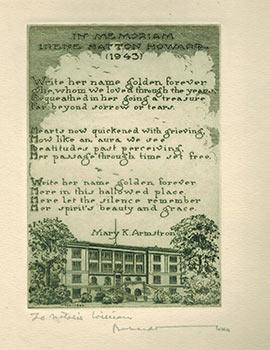 IN MEMORIAM
IRENE HATTON HOWARD
(1943)
Write her name golden forever
She, whom we loved through the years,
Bequeathed in her going a treasure
Far beyond sorrow or tears.
Hearts now quickened with grieving,
How like an aura we see
Beatitudes past perceiving
Her passage through time set free.
Write her name golden forever
Here in this hallowed place.
Here let the silence remember
Her spirit's beauty and grace.
Mary K. Armstrong
To